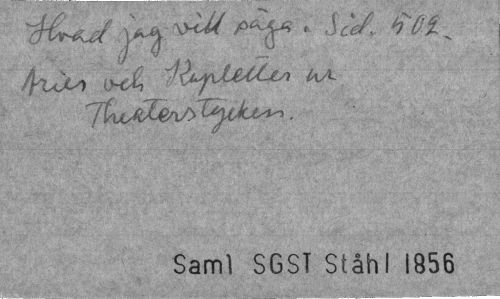 Hvad jag vill säga. Sid. 502.
Arier och Kupletter ur
Theaterstycken.
Saml SGST Ståhl 1856